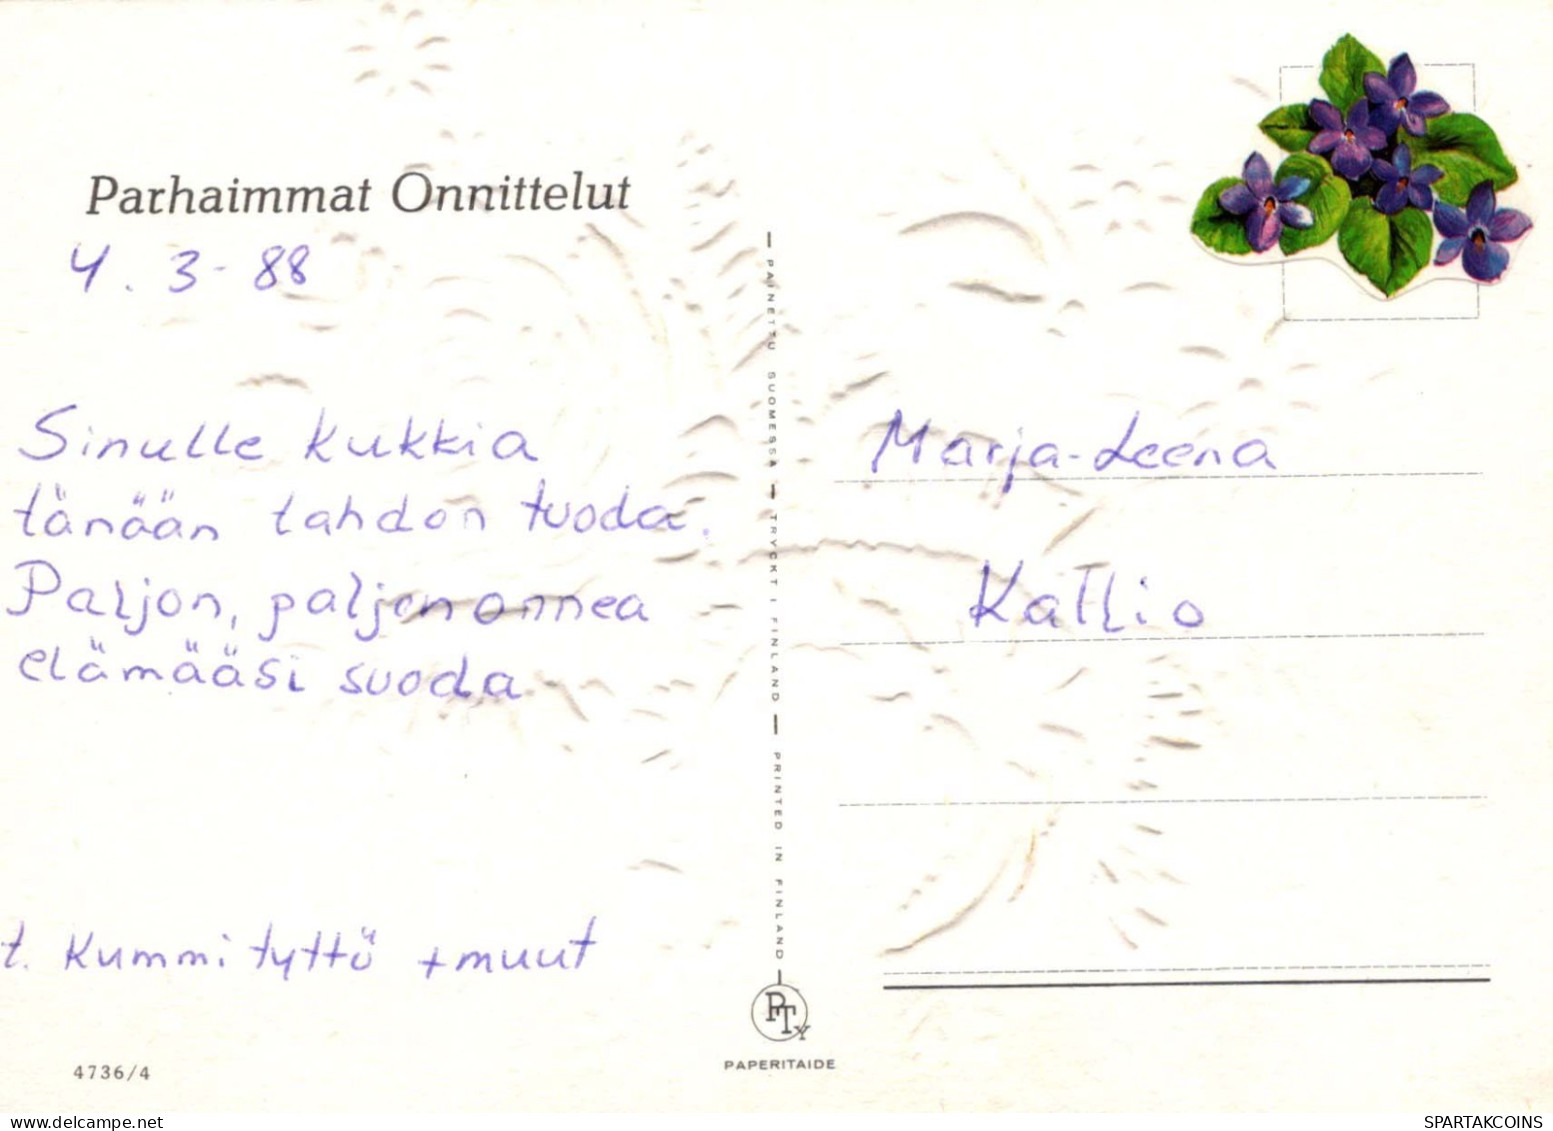 Parhaimmat Onnittelut
4. 3-88
Sinulle kukkia
tänään tahdon tuoda.
Paljon, paljon onnea
elämääsi suoda
t. Kummityttö + muut
4736/4
PAINETTU SUOMESSA — TRYCKT I FINLAND — PRINTED IN FINLAND
PTy
PAPERITAIDE
Marja-Leena
Kallio
SPARTAKCOINS